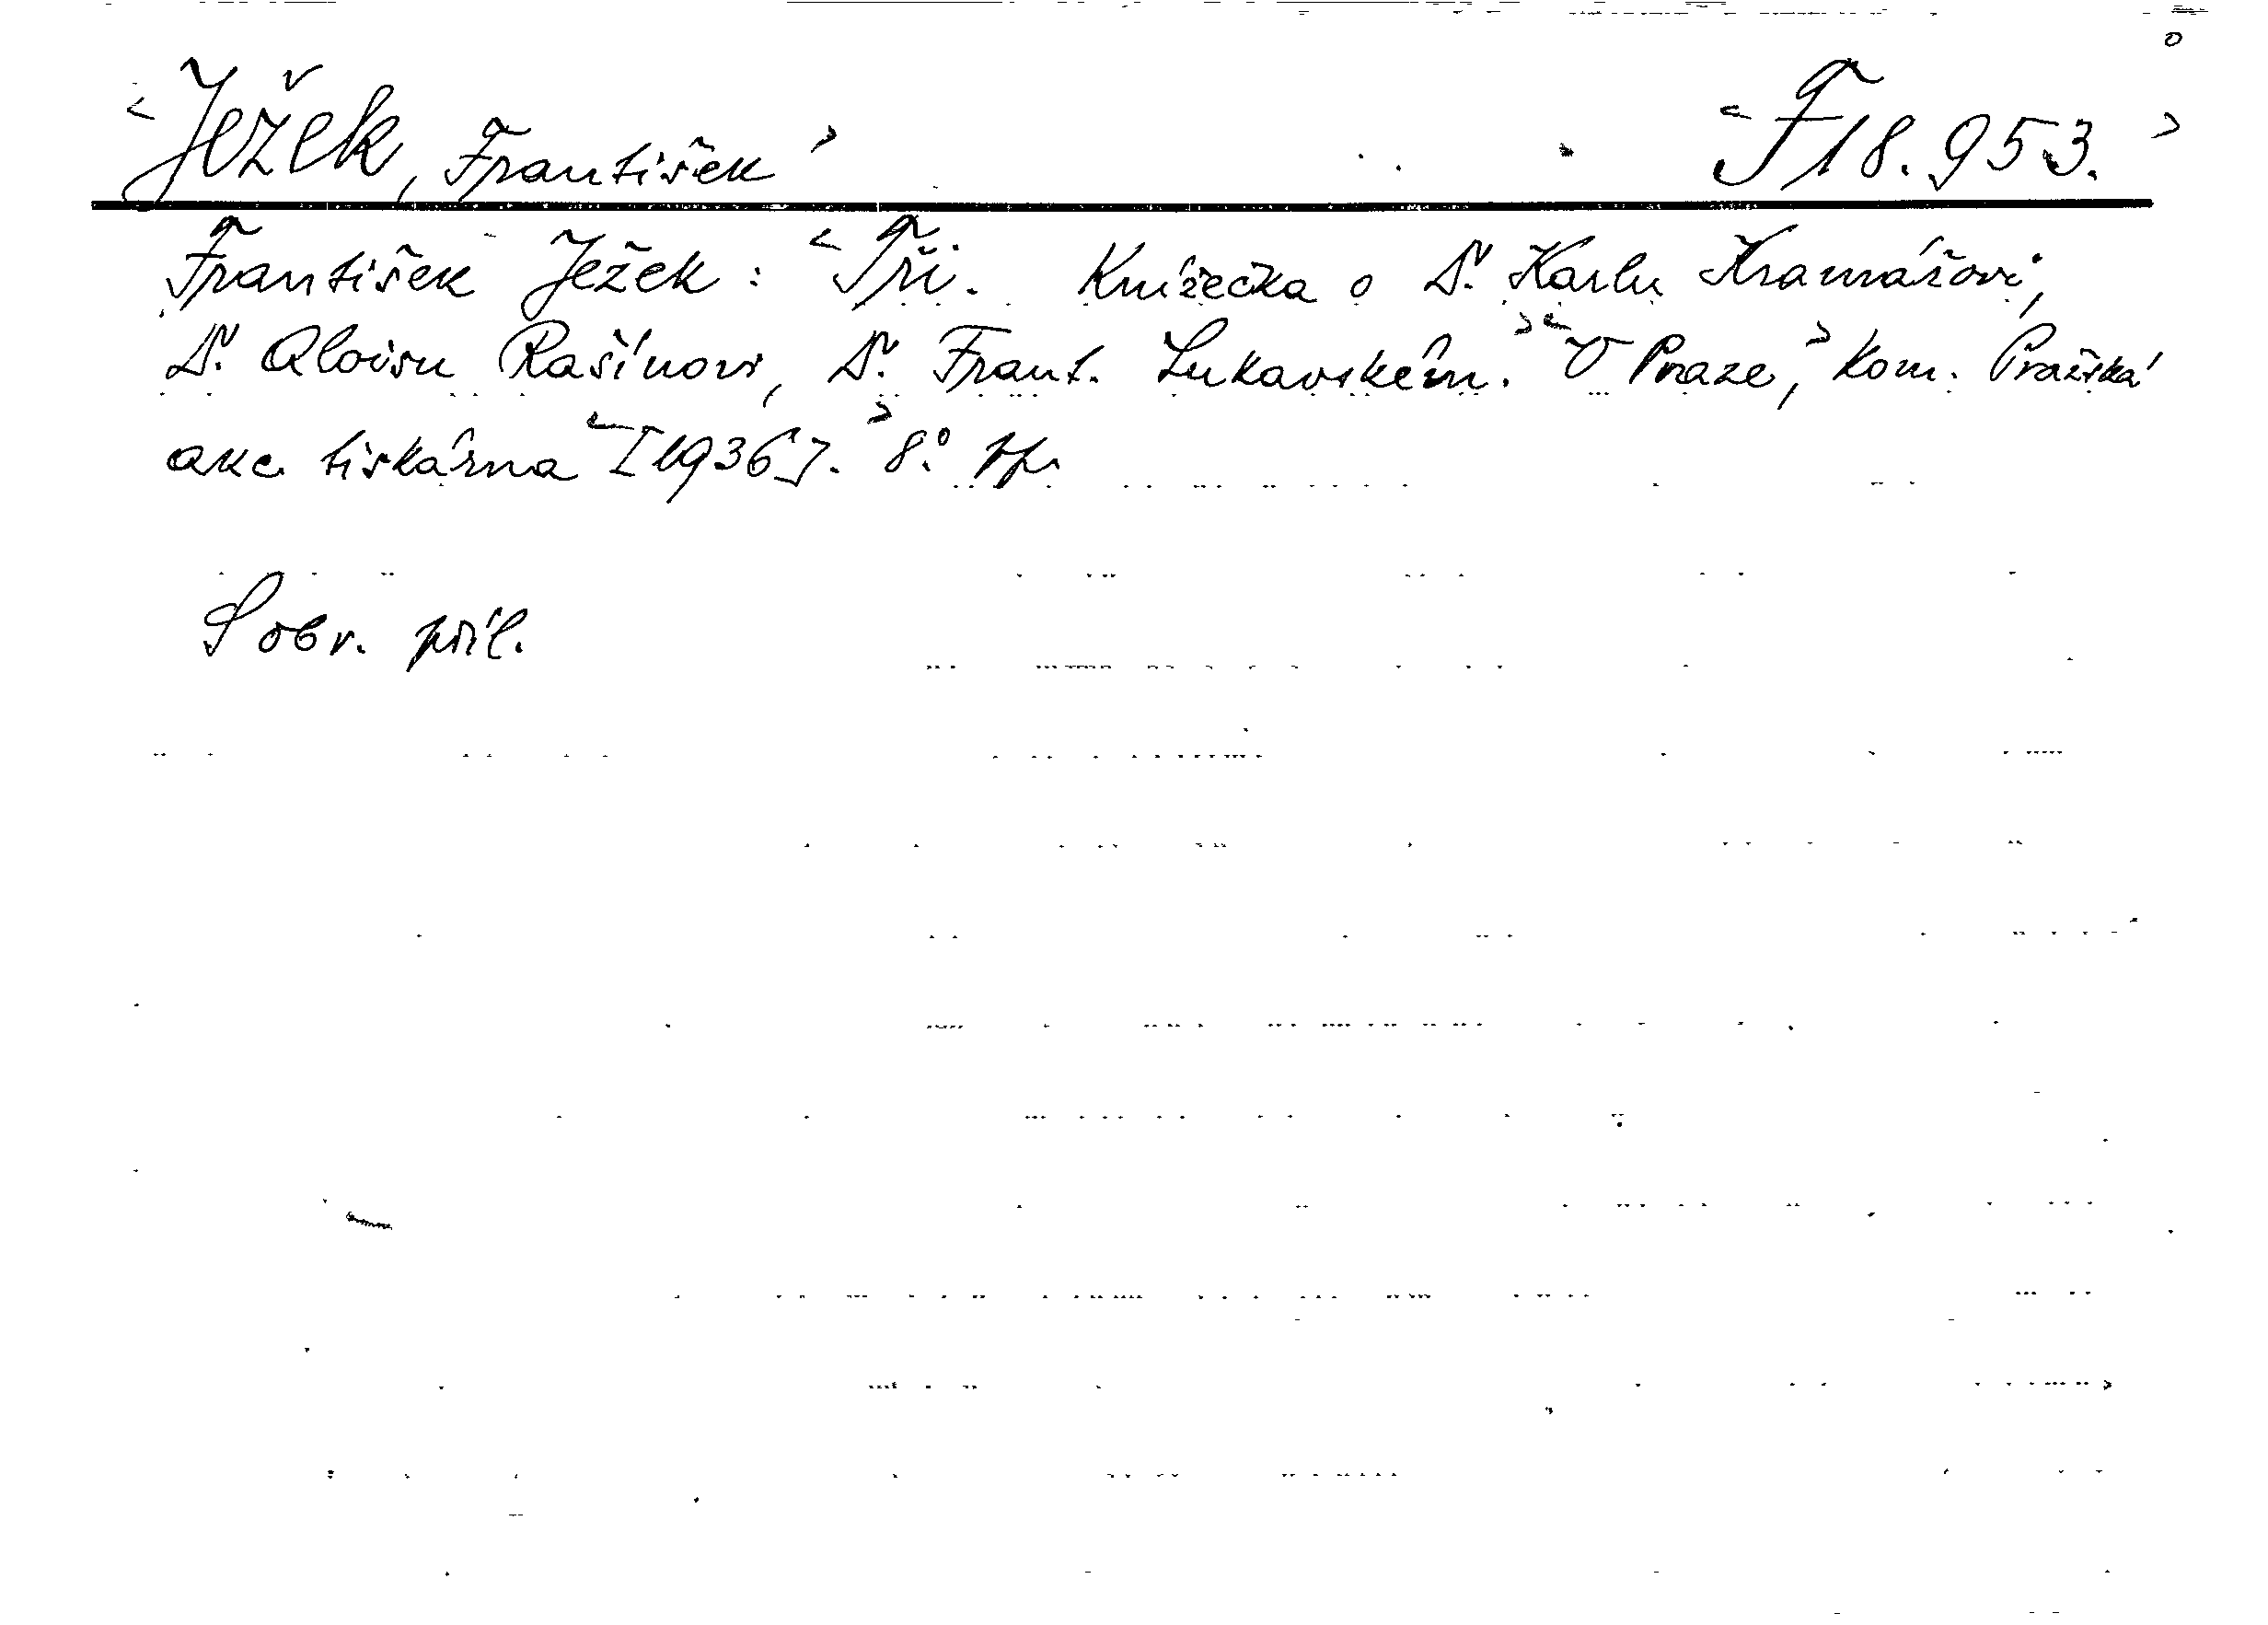 <Ježek, František> <F 18.953.>
František Ježek: <Tři. Knížečka o Dr. Karlu Kramářovi,
Dr. Aloisu Rašínovi, Dr. Frant. Lukavském.> <V Praze,> kom. Pražská
akc. tiskárna <[1936].> 8°.
S obr. příl.